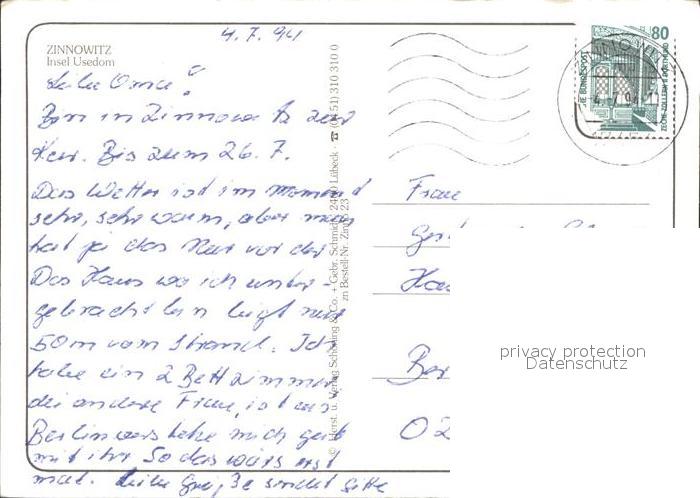 4.7.94
ZINNOWITZ
Insel Usedom
Liebe Oma!
Bin in Zinnowitz zur
Kur. Bis zum 26.7.
Das Wetter ist im Moment
sehr, sehr warm, aber man
hat ja das Meer vor der
Das Haus wo ich unter-
gebracht bin liegt nur
50m vom Strand. Ich
habe ein 2 Bettzimmer
die andere Frau, ist aus
Berlin verstehe mich gut
mit ihr. So das wärs erst
mal. Liebe Grüße sendet Gitte
© Herst. u. Verlag Schöning & Co. + Gebr. Schmidt, Lübeck · ☎ (04 51) 310 310 0
zu Bestell-Nr. Zin 23
80
DEUTSCHE BUNDESPOST
ZECHE ZOLLERN II DORTMUND
Frau
Ber
02
privacy protection
Datenschutz